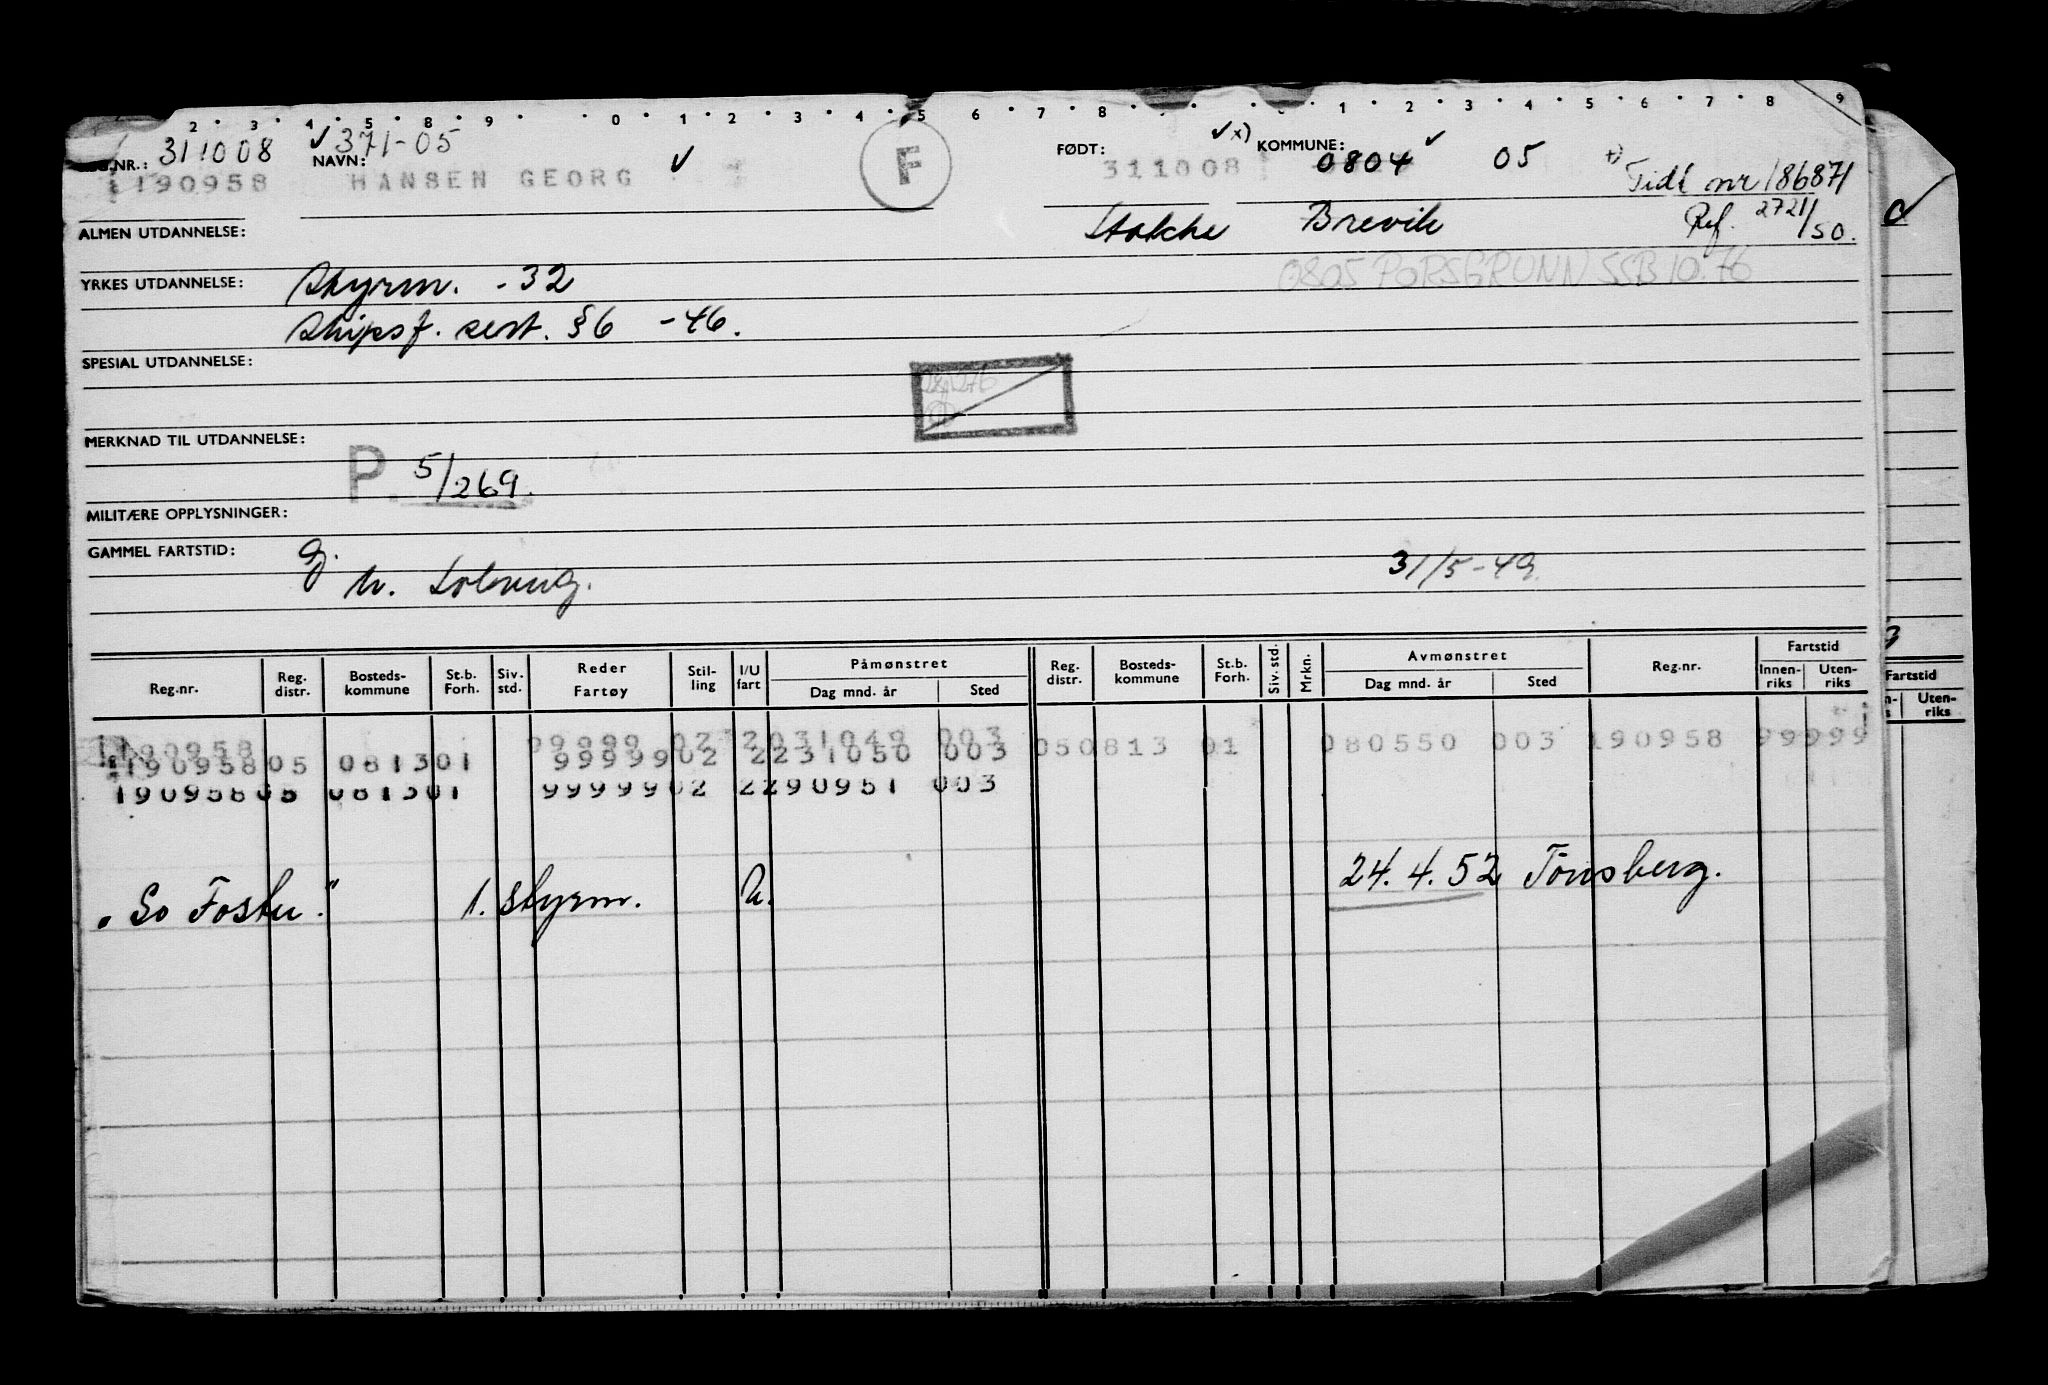 2 3 4 5 8 9 0 1 2 3 4 5 6 7 8 1 2 3 4 5 6 7 8 9
NR.: 311008 ✓371-05 NAVN: ✓ F FØDT: ✓x) KOMMUNE: 0804 ✓ 05
190958 HANSEN GEORG 311008 Tidl nr 186871
ALMEN UTDANNELSE: Stokke Brevik Ref. 2721/50.
YRKES UTDANNELSE: Styrm. -32 0805 PORSGRUNN SSB 10.76
Skipsf. sert. §6 -46.
SPESIAL UTDANNELSE:
MERKNAD TIL UTDANNELSE:
P. 5/269.
MILITÆRE OPPLYSNINGER:
GAMMEL FARTSTID: 31/5-49.
Reg.nr. Reg. distr. Bosteds-kommune St.b. Forh. Siv. std. Reder Fartøy Stil-ling I/U fart Påmønstret Dag mnd. år Sted Reg. distr. Bosteds-kommune St.b. Forh. Siv. std. Mrkn. Avmønstret Dag mnd. år Sted Reg.nr. Fartstid Innen-riks Uten-riks
190958 99999 02 2 031049 003 050813 01 080550 003 190958 99999
190958 05 081301 99999 02 2 231050 003
190958 05 081301 99999 02 2 290951 003
1. styrm. U. 24.4.52 Tönsberg.
Fartstid
Uten-riks